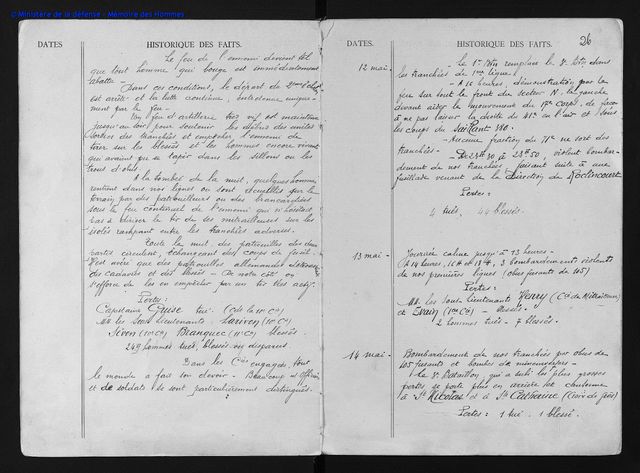 © Ministère de la défense - Mémoire des Hommes
DATES
HISTORIQUE DES FAITS.
Le feu de l'ennemi devient tel
que tout homme qui bouge est immédiatement
abattu -
Dans ces conditions, le départ de
est arrêté et la lutte continue, unique-
ment par le feu -
Un feu d'artillerie très vif est maintenu
jusqu'au soir pour soutenir les débris des unités
sorties des tranchées et empêcher l'ennemi de
tirer sur les blessés et les hommes encore vivant
qui avaient pu se tapir dans les sillons ou les
trous d'obus -
A la tombée de la nuit, quelques hommes
rentrent dans nos lignes ou sont recueillis sur le
terrain par des patrouilleurs ou des brancardiers
sous le feu continuel de l'ennemi qui n'hésitait
pas à diriger le tir de ses mitrailleuses sur les
isolés rampant entre les tranchées adverses.
Toute la nuit, des patrouilles des deux
partis circulent, échangeant des coups de fusil.
Il est avéré que des patrouilles allemandes
des cadavres et des blessés - De notre côté on
s'efforce de les en empêcher par un tir très
Pertes:
Capitaine Guise tué
MM. les Sous Lieutenants Larivon (10e Cie)
Siven Beauquec (11e Cie) blessés
249 hommes tués, blessés ou disparus.
Dans les Cies engagées, tout
le monde a fait son devoir - Beaucoup d'officiers
et de soldats se sont particulièrement distingués.
DATES.
HISTORIQUE DES FAITS.
26
12 mai -
Le 1er Btn remplace le 3e Btn dans
les tranchées de 1ère ligne.
A 16 heures, démonstration par le
feu sur tout le front du secteur N, la gauche
devant aider le mouvement du 17e corps, de façon
à ne pas laisser la droite du en l'air et sous
les coups du Saillant
- Aucune fraction du ne sort des
tranchées -
- De 23h30 à 23h50, violent bombar-
dement de nos tranchées faisant suite à une
fusillade venant de la Direction de Roclincourt
Pertes:
4 tués, 44 blessés.
13 mai -
Journée calme jusqu'à 13 heures -
A 14 heures, 16h et 18h, 3 bombardements violents
de nos premières lignes (obus fusants de 105)
Pertes:
MM. les Sous-Lieutenants Henry (Cie de Mitrailleuses)
et Evain (1ère Cie) - blessés.
2 hommes tués - 7 blessés.
14 mai -
Bombardement de nos tranchées par obus de
105 fusants et bombes de minenwerfers -
Le 3e Bataillon, qui a subi les plus grosses
pertes se porte plus en arrière et cantonne
à St Nicolas et à Ste Catherine
Pertes: 1 tué - 1 blessé.